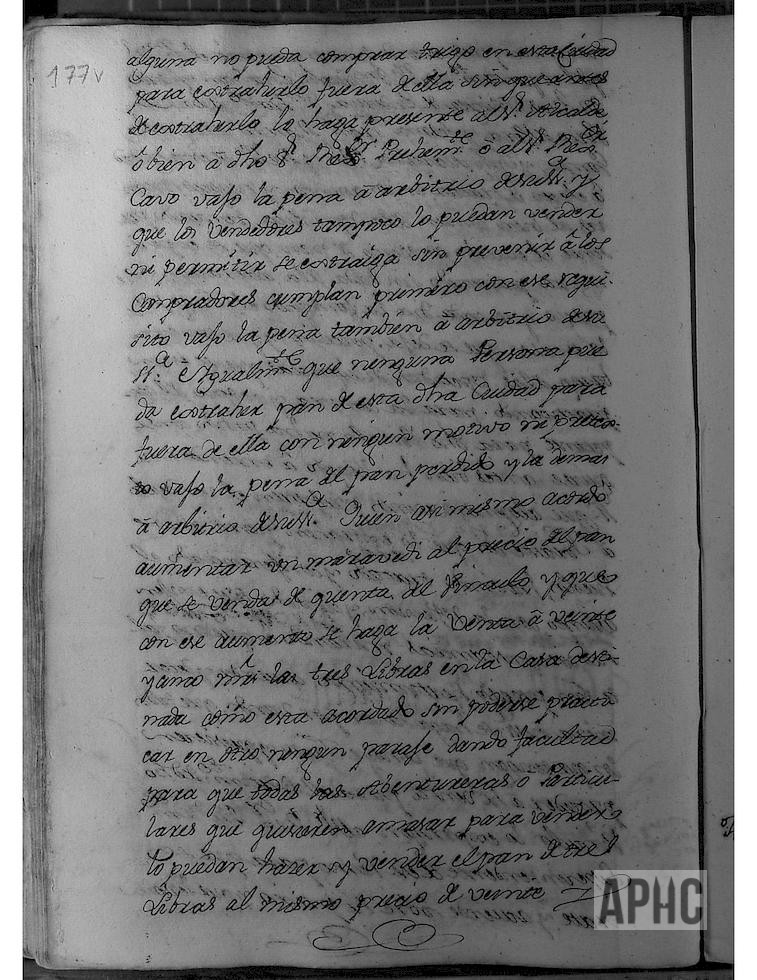 177v
alguna no pueda comprar trigo en esta Ciudad
para extraherlo fuera de ella sin que antes
de extraherlo lo haga presente al Sr. Alcalde
ô bien â dho Sr. Rexor. Prehemte. ô al Sr. Rexor.
Cavo vajo la pena â arbitrio de su Sa. y
que los Vendedores tampoco lo puedan vender
ni permitir se extraiga sin prevenir â los
Compradores cumplan primero con ese requi-
sito vajo la pena tambien â arbitrio de su
Sa. Ygualmte. que ninguna Persona pue
da extraher pan de esta dha Ciudad para
fuera de ella con ningun motivo ni pretex-
to vajo la pena del pan perdido y la demas
â arbitrio de su Sa. Quien asi mismo acordô
aumentar un maravedi al precio del pan
que se venda de quenta del Vinculo, y que
con ese aumento se haga la Venta â veinte
y cinco mrs. las tres Libras en la Casa desti-
nada como esta acordado sin poderse practi
car en otro ningun paraje dando facultad
para que todas las Abentureras ô Particu-
lares que quisieren amasar para vender
lo puedan hazer y vender el pan de tres
Libras al mismo precio de veinte y
APHC